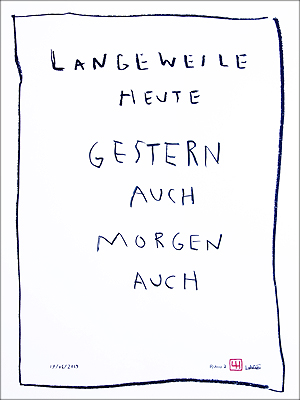 LANGEWEILE
HEUTE
GESTERN
AUCH
MORGEN
AUCH